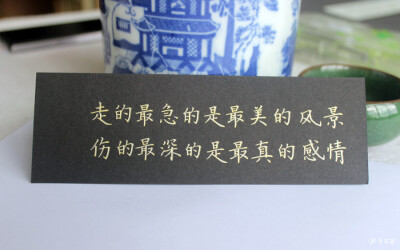 走的最急的是最美的风景
伤的最深的是最真的感情